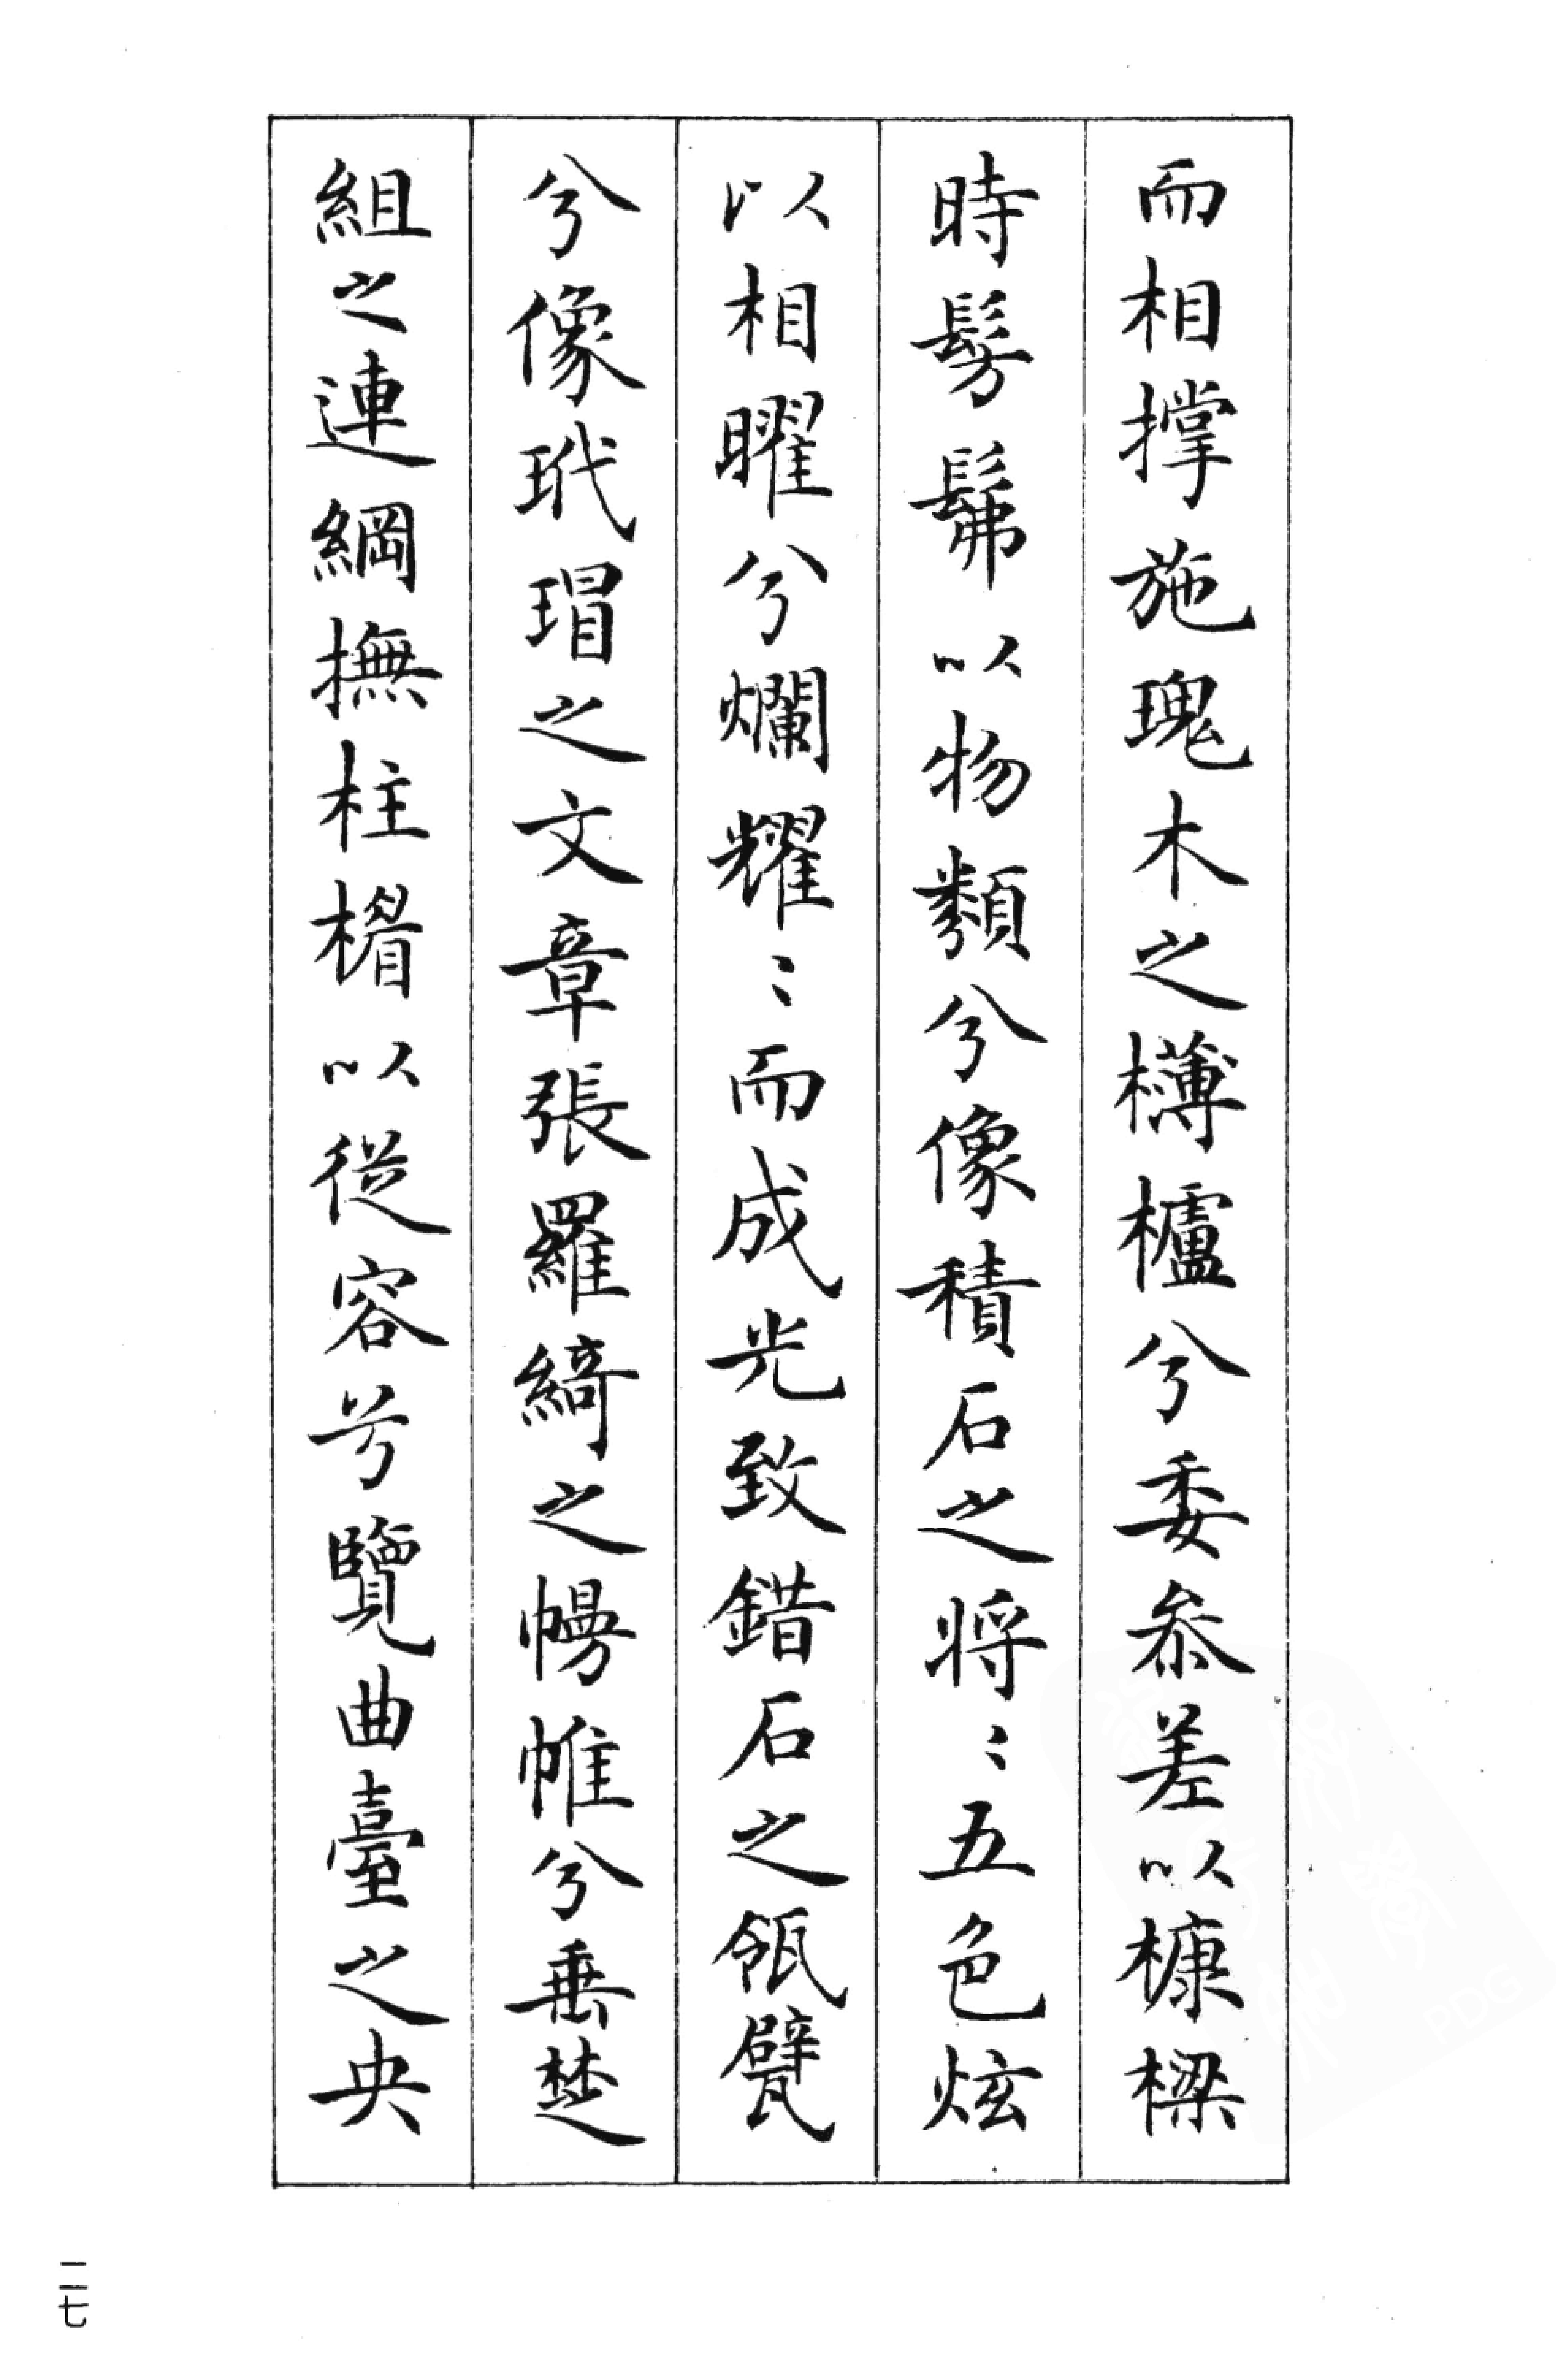 而相撑施瑰木之欂櫨兮委参差以槺樑
時髣髴以物類兮像積石之将〻五色炫
以相曜兮爛耀〻而成光致錯石之瓴甓
兮像玳瑁之文章張羅綺之幔帷兮垂楚
組之連綱撫柱楣以從容兮覽曲臺之央
二七